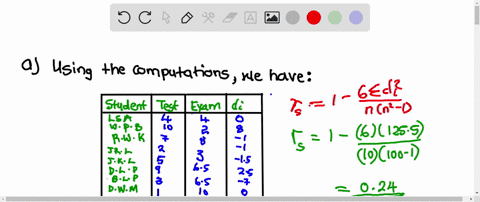 a) Using the computations, we have:
Student Test Exam di
LSA 4 4 0
W.P.B 10 2 8
R.W.K 7 8 -1
J.R.L 2 3 -1
J.K.L 5 6.5 -1.5
D.L.P 9 6.5 2.5
B.L.P 3 -7
D.W.M 1 10 0
r_s = 1 - 6Σdi²/n(n²-1)
r_s = 1 - (6)(125.5)/(10)(100-1)
= 0.24